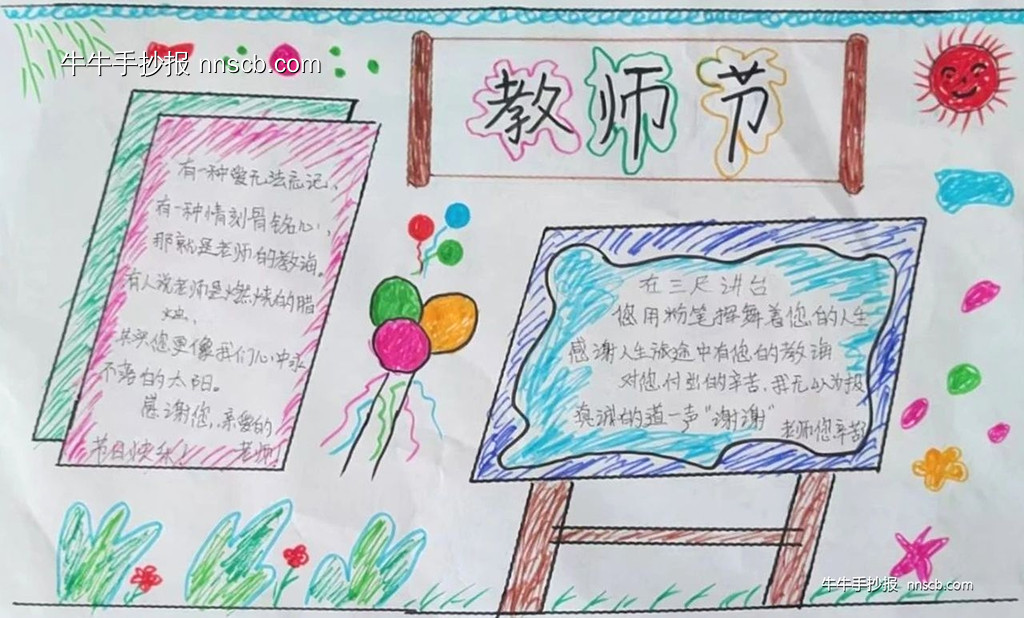 牛牛手抄报 nnscb.com
教师节
有一种爱无法忘记、
有一种情刻骨铭心、
那就是老师的教诲。
有人说老师是燃烧的腊
烛、
其实您更像我们心中永
不落的太阳。
感谢您,亲爱的
老师!
节日快乐!
在三尺讲台
您用粉笔挥舞着您的人生
感谢人生旅途中有您的教诲
对您付出的辛苦,我无以为报
真诚的道一声"谢谢"
老师您辛苦
牛牛手抄报 nnscb.com